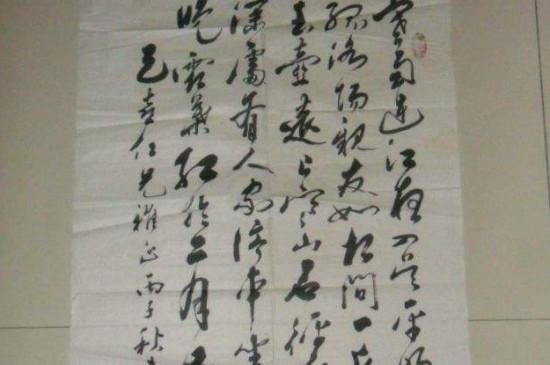 寒雨連江夜入吳平明
孤洛陽親友如相問一片
玉壺遠上寒山石徑
深處有人家停車坐
晚霜葉紅於二月
仁兄雅正丙子秋